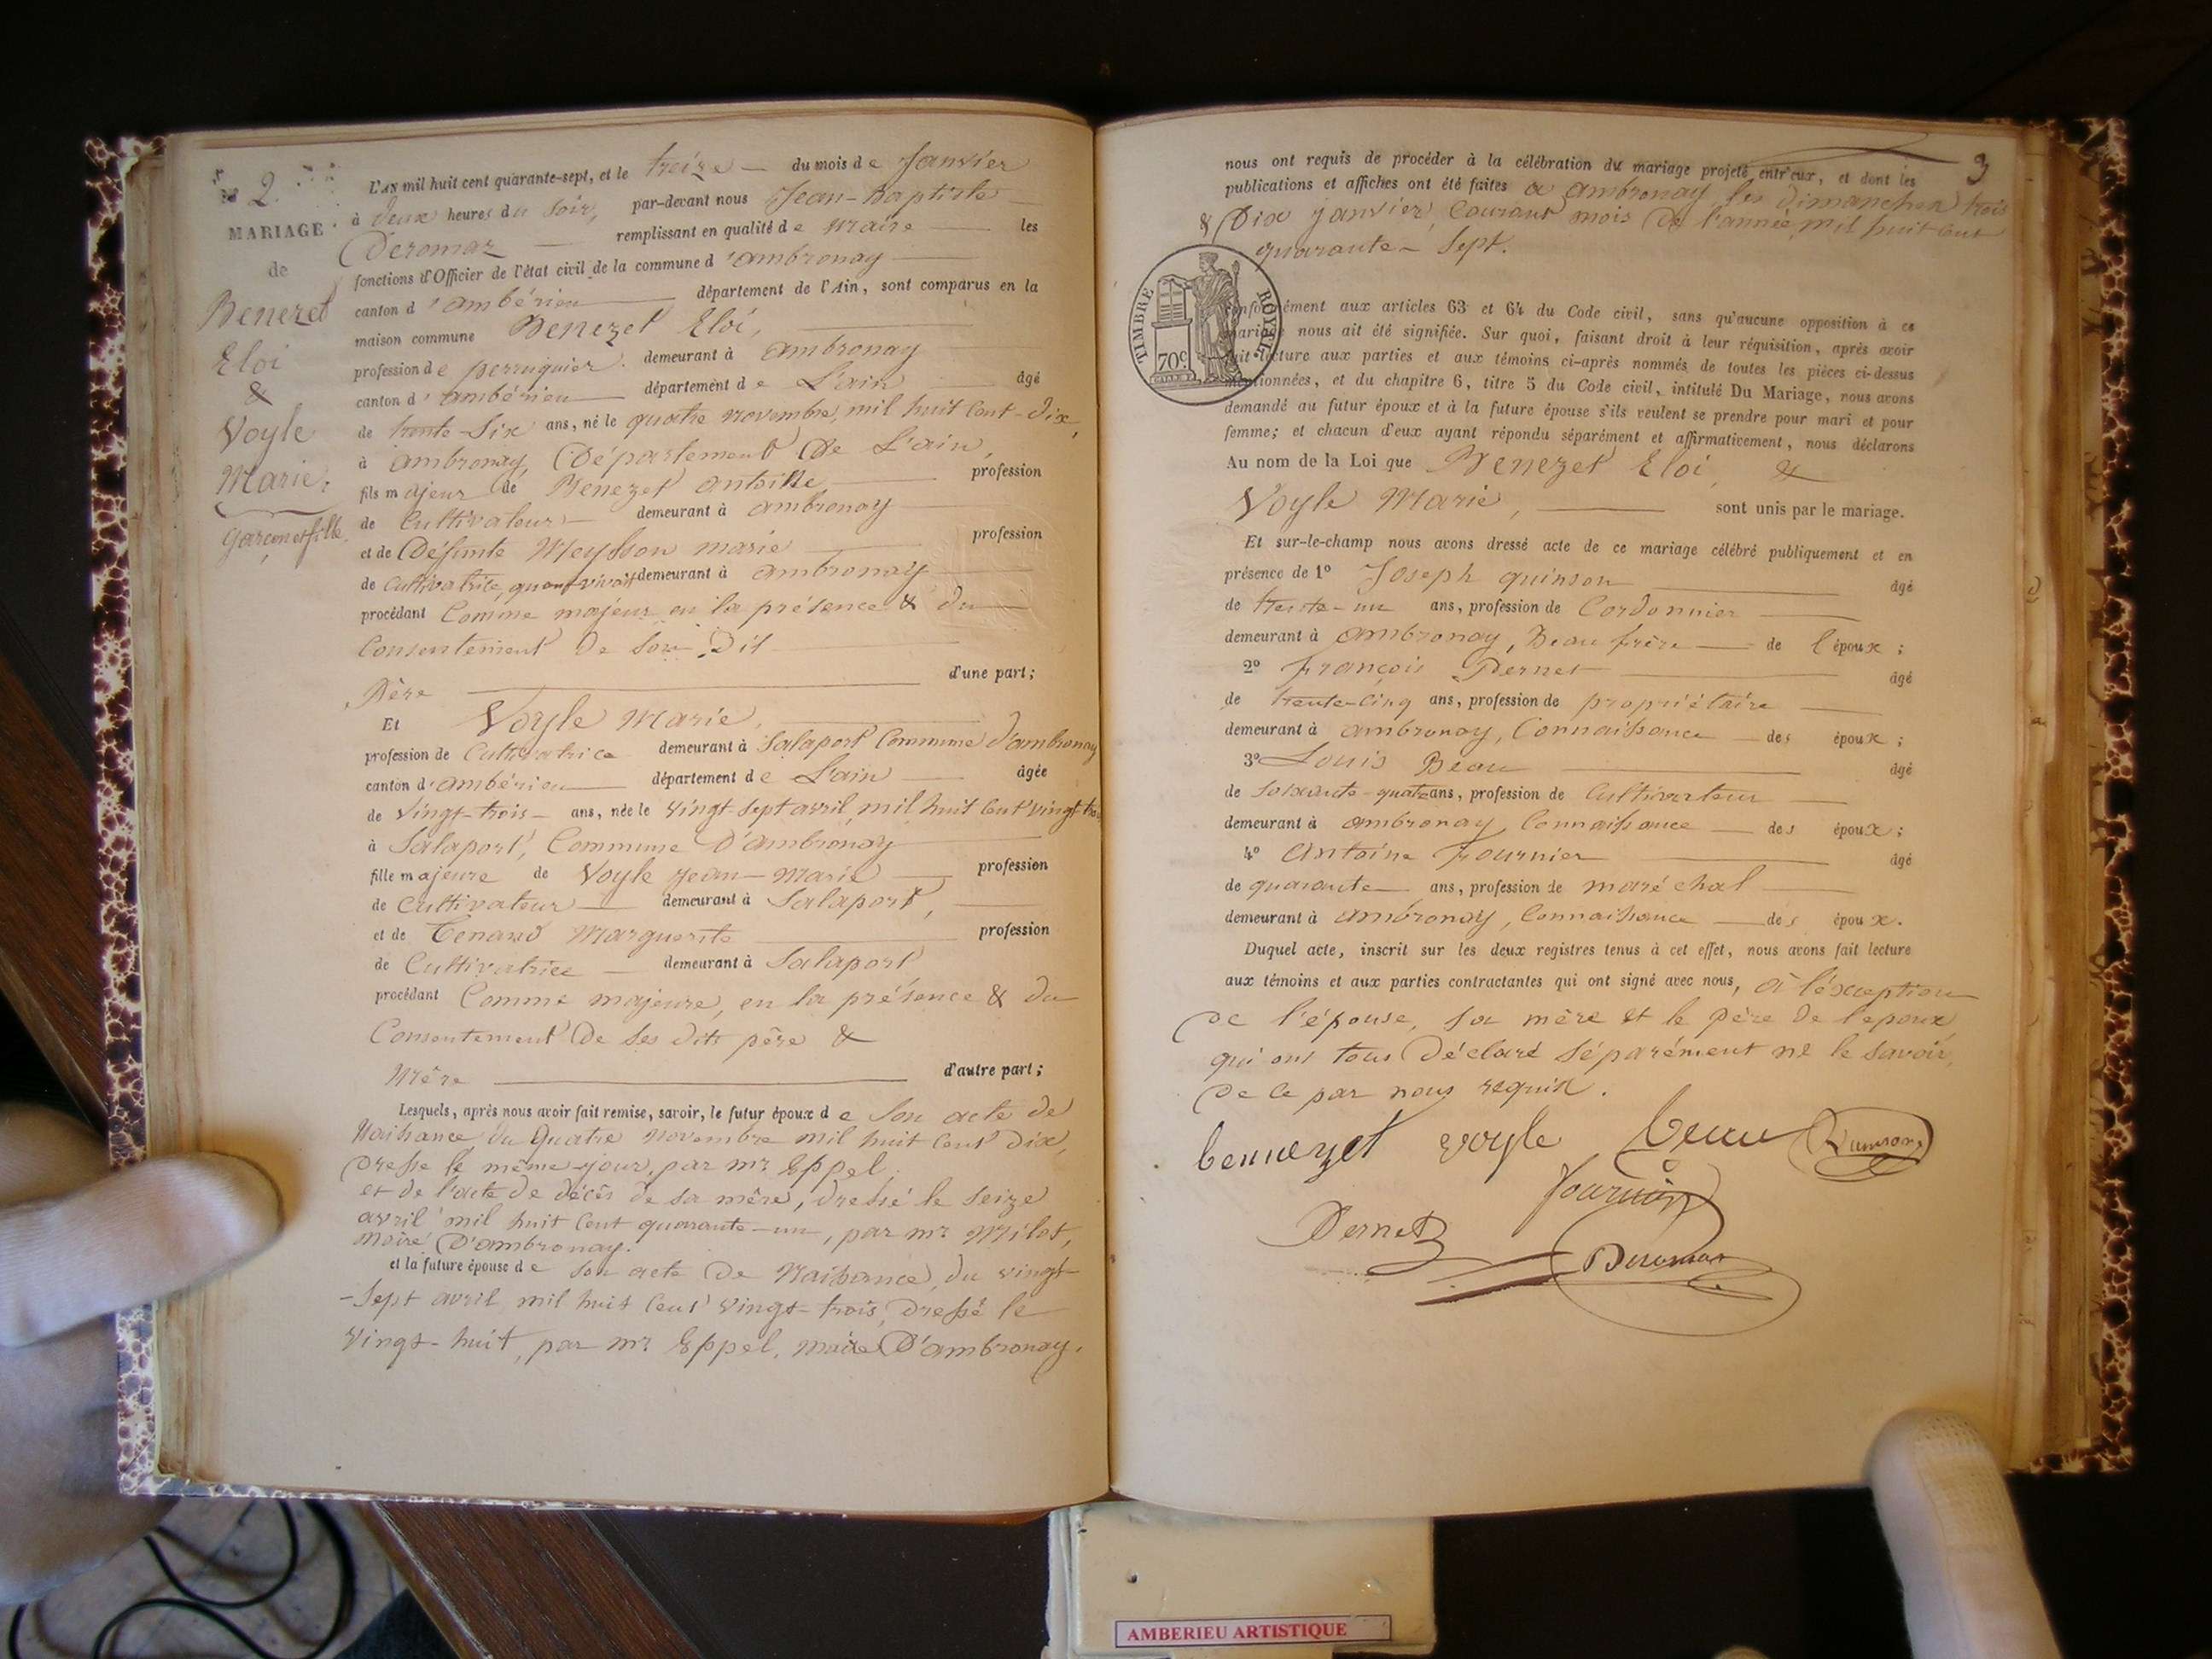 No 2.
MARIAGE
de
Benezet
Eloi
&
Voyle
Marie.
garçon et fille.
L'AN mil huit cent quarante-sept, et le treize du mois de Janvier
à deux heures du soir, par-devant nous Jean-Baptiste
Deromaz remplissant en qualité de maire les
fonctions d'Officier de l'état civil de la commune d'ambronay
canton d'ambérieu département de l'Ain, sont comparus en la
maison commune Benezet Eloi,
profession de perruquier. demeurant à ambronay
canton d'ambérieu département de L'ain âgé
de trente-six ans, né le quatre novembre, mil huit cent-dix,
à ambronay, Département de L'ain,
fils majeur de Benezet antoine, profession
de cultivateur demeurant à ambronay
et de Défunte Meysson marie profession
de cultivatrice, quand vivait demeurant à ambronay
procédant comme majeur en la présence & du
consentement de son dit
Père d'une part;
Et Voyle Marie,
profession de cultivatrice demeurant à Salaport commune d'ambronay
canton d'ambérieu département de L'ain âgée
de vingt-trois ans, née le vingt-sept avril, mil huit cent vingt-trois
à Salaport, Commune D'ambronay
fille majeure de Voyle Jean-Marie profession
de cultivateur demeurant à Salaport,
et de Tenand Marguerite profession
de Cultivatrice demeurant à Salaport
procédant comme majeure, en la présence & du
Consentement de ses dits père &
Mère d'autre part;
Lesquels, après nous avoir fait remise, savoir, le futur époux de son acte de
Naissance, du Quatre novembre mil huit cent dix,
dressé le même jour, par mr Eppel.
et de l'acte de décès de sa mère, dressé le seize
avril mil huit cent quarante-un, par mr Milot,
maire D'ambronay.
et la future épouse de son acte de Naissance, du vingt
-sept avril, mil huit cent vingt-trois, dressé le
vingt-huit, par mr Eppel, maire D'ambronay.
3
nous ont requis de procéder à la célébration du mariage projeté entr'eux, et dont les
publications et affiches ont été faites à ambronay, les dimanches trois
& Dix janvier, courant mois de l'année mil huit cent
quarante-sept.
TIMBRE ROYAL
70 c
conformément aux articles 63 et 64 du Code civil, sans qu'aucune opposition à ce
mariage nous ait été signifiée. Sur quoi, faisant droit à leur réquisition, après avoir
fait lecture aux parties et aux témoins ci-après nommés de toutes les pièces ci-dessus
mentionnées, et du chapitre 6, titre 5 du Code civil, intitulé Du Mariage, nous avons
demandé au futur époux et à la future épouse s'ils veulent se prendre pour mari et pour
femme; et chacun d'eux ayant répondu séparément et affirmativement, nous déclarons
Au nom de la Loi que Benezet Eloi, &
Voyle Marie, sont unis par le mariage.
Et sur-le-champ nous avons dressé acte de ce mariage célébré publiquement et en
présence de 1o Joseph quinson âgé
de trente-un ans, profession de Cordonnier
demeurant à ambronay, Beau frère de l'époux;
2o François Dernet âgé
de trente-cinq ans, profession de propriétaire
demeurant à ambronay, Connaissance des époux;
3o Louis Beau âgé
de soixante-quatre ans, profession de cultivateur
demeurant à ambronay, connaissance des époux;
4o Antoine Fournier âgé
de quarante ans, profession de maréchal
demeurant à ambronay, connaissance des époux.
Duquel acte, inscrit sur les deux registres tenus à cet effet, nous avons fait lecture
aux témoins et aux parties contractantes qui ont signé avec nous, à l'exception
de l'épouse, sa mère et le père de l'époux
qui ont tous déclaré séparément ne le savoir,
de ce par nous requis.
bennezet voyle beau
fournier
Dernet
Deromaz
AMBERIEU ARTISTIQUE